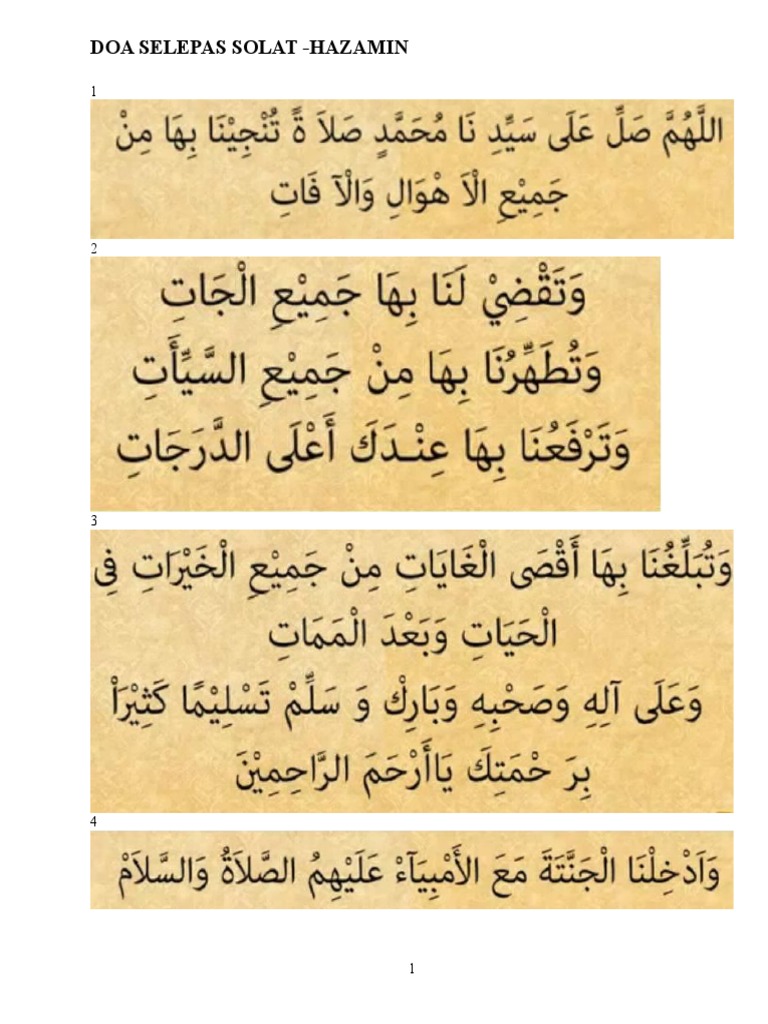 DOA SELEPAS SOLAT -HAZAMIN
1
اللَّهُمَّ صَلِّ عَلَى سَيِّدِ نَا مُحَمَّدٍ صَلاَ ةً تُنْجِيْنَا بِهَا مِنْ
جَمِيْعِ الْاَ هْوَالِ وَالْآ فَاتِ
2
وَتَقْضِيْ لَنَا بِهَا جَمِيْعِ الْجَاتِ
وَتُطَهِّرُنَا بِهَا مِنْ جَمِيْعِ السَّيِّأَتِ
وَتَرْفَعُنَا بِهَا عِنْـدَكَ أَعْلَى الدَّرَجَاتِ
3
وَتُبَلِّغُنَا بِهَا أَقْصَى الْغَايَاتِ مِنْ جَمِيْعِ الْخَيْرَاتِ فِى
الْحَيَاتِ وَبَعْدَ الْمَمَاتِ
وَعَلَى آلِهِ وَصَحْبِهِ وَبَارِكْ وَ سَلِّمْ تَسْلِيْمًا كَثِيْرَاْ
بِرَ حْمَتِكَ يَاأَرْحَمَ الرَّاحِمِيْنَ
4
وَاَدْخِلْنَا الْجَنَّتَةَ مَعَ الأَمْبِيَآءْ عَلَيْهِمُ الصَّلاَةُ وَالسَّلاَمْ
1